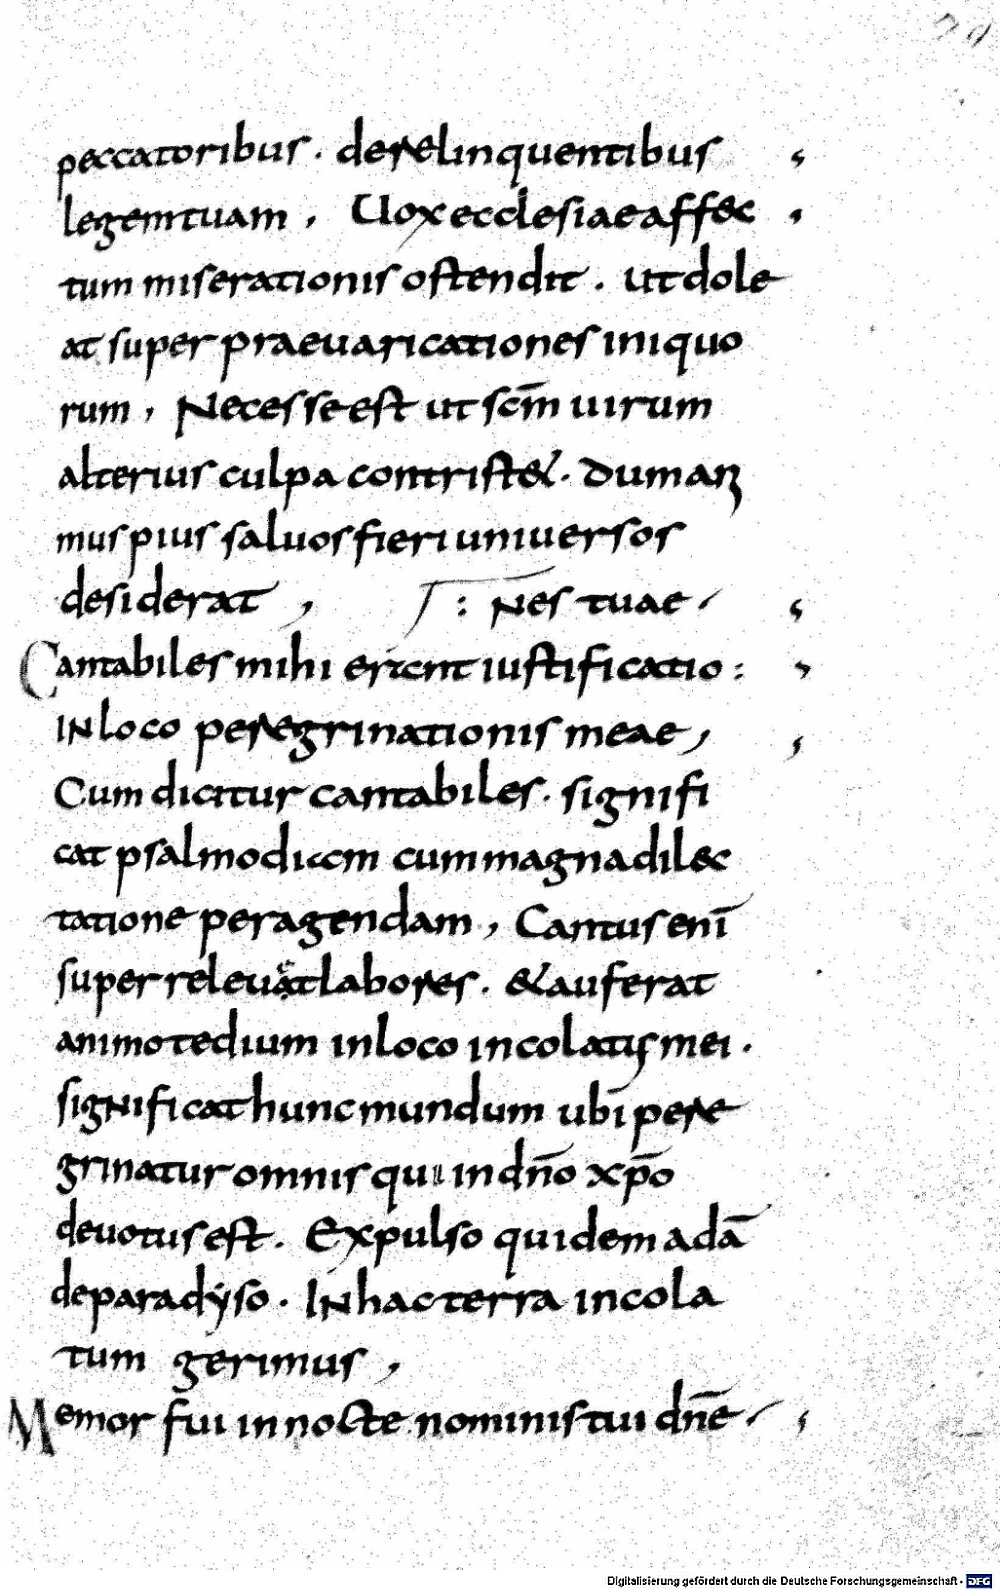 peccatoribus . derelinquentibus
legem tuam , Uox ecclesiae affec
tum miserationis ostendit . ut dole
at super praeuaricationes iniquo
rum , Necesse est ut scm̄ uirum
alterius culpa contrist& . dum
mus pius saluos fieri uniuersos
desiderat , : Nes tuae
Cantabiles mihi erant iustificatio :
IN loco peregrinationis meae ,
Cum dicitur cantabiles . signifi
cat psalmodiam cum magna dilec
tatione peragendam , Cantus enī
super releuat labores . & auferat
animo tedium in loco incolatus mei .
significat hunc mundum ubi pere
grinatur omnis qui in dn̄o xp̄o
deuotus est . Expulso quidem adā
de paradẏso . IN hac terra incola
tum gerimus ,
Memor fui in nocte nominis tui dn̄e
Digitalisierung gefördert durch die Deutsche Forschungsgemeinschaft - DFG